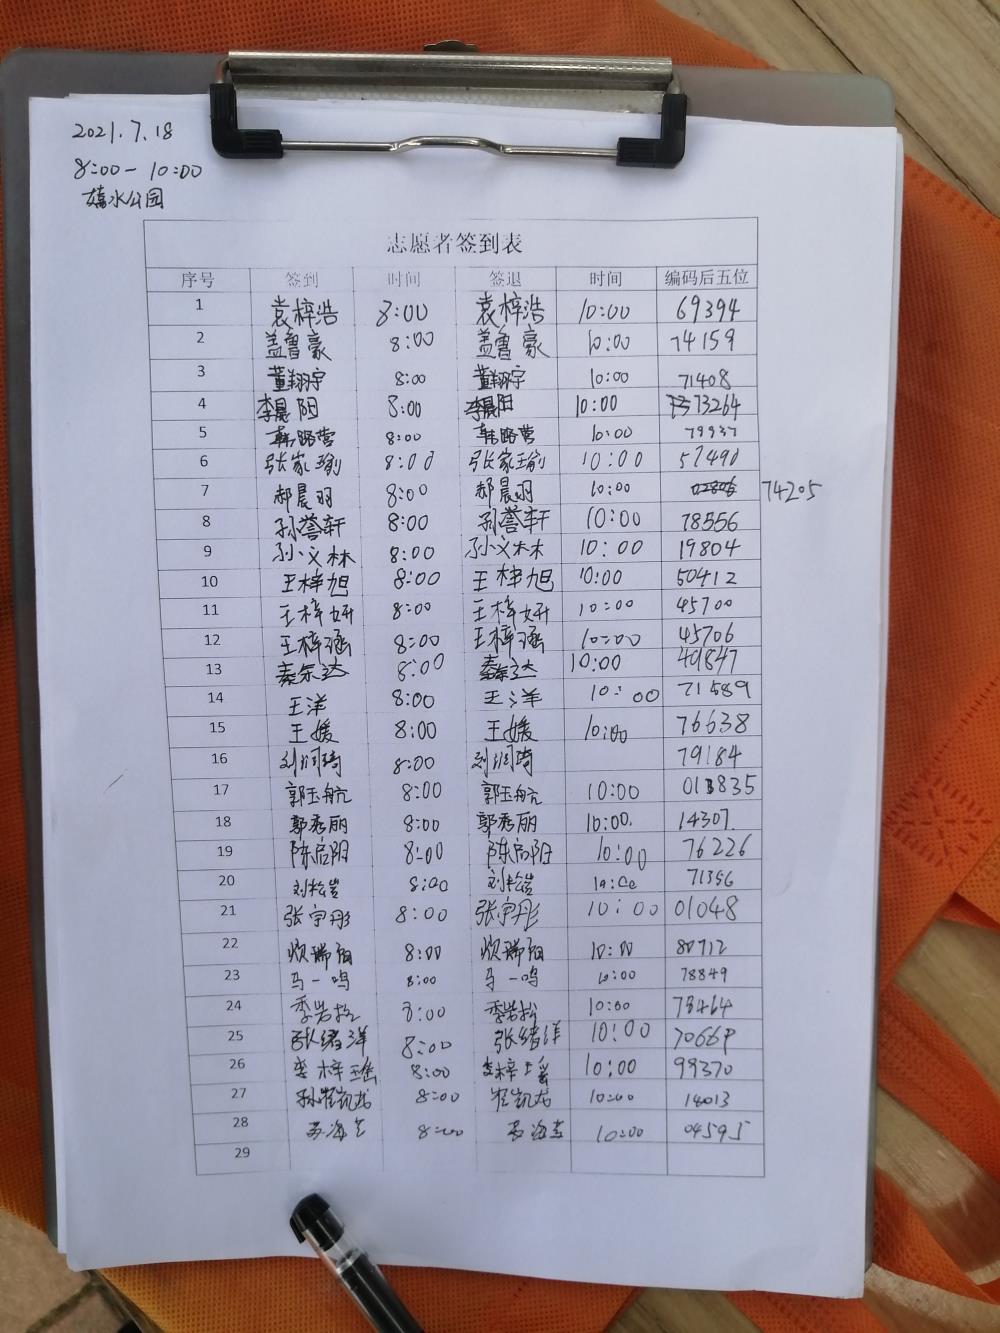 2021.7.18
8:00-10:00
嬉水公园
志愿者签到表
序号 签到 时间 签退 时间 编码后五位
1 袁梓浩 8:00 袁梓浩 10:00 69394
2 盖鲁豪 8:00 盖鲁豪 10:00 74159
3 董翔宇 8:00 董翔宇 10:00 71408
4 李晨阳 8:00 李晨阳 10:00 73264
5 韩路营 8:00 韩路营 10:00 79937
6 张家瑜 8:00 张家瑜 10:00 57490
7 郝晨羽 8:00 郝晨羽 10:00 74205
8 孙誉轩 8:00 孙誉轩 10:00 78556
9 孙文林 8:00 孙文林 10:00 19804
10 王梓旭 8:00 王梓旭 10:00 50412
11 王梓妍 8:00 王梓妍 10:00 45700
12 王梓涵 8:00 王梓涵 10:00 45706
13 秦东达 8:00 秦东达 10:00 49847
14 王洋 8:00 王洋 10:00 71589
15 王媛 8:00 王媛 10:00 76638
16 刘润琦 8:00 刘润琦 79184
17 郭玉航 8:00 郭玉航 10:00 013835
18 郭秀丽 8:00 郭秀丽 10:00 14307
19 陈启阳 8:00 陈启阳 10:00 76226
20 刘松岩 8:00 刘松岩 10:00 71356
21 张宇彤 8:00 张宇彤 10:00 01048
22 8:00 10:00 80712
23 马一鸣 8:00 马一鸣 10:00 78849
24 季岩松 8:00 季岩松 10:00 78464
25 张绪洋 8:00 张绪洋 10:00 70669
26 李梓瑶 8:00 李梓瑶 10:00 99370
27 崔凯龙 8:00 崔凯龙 10:00 18013
28 8:00 10:00 04595
29